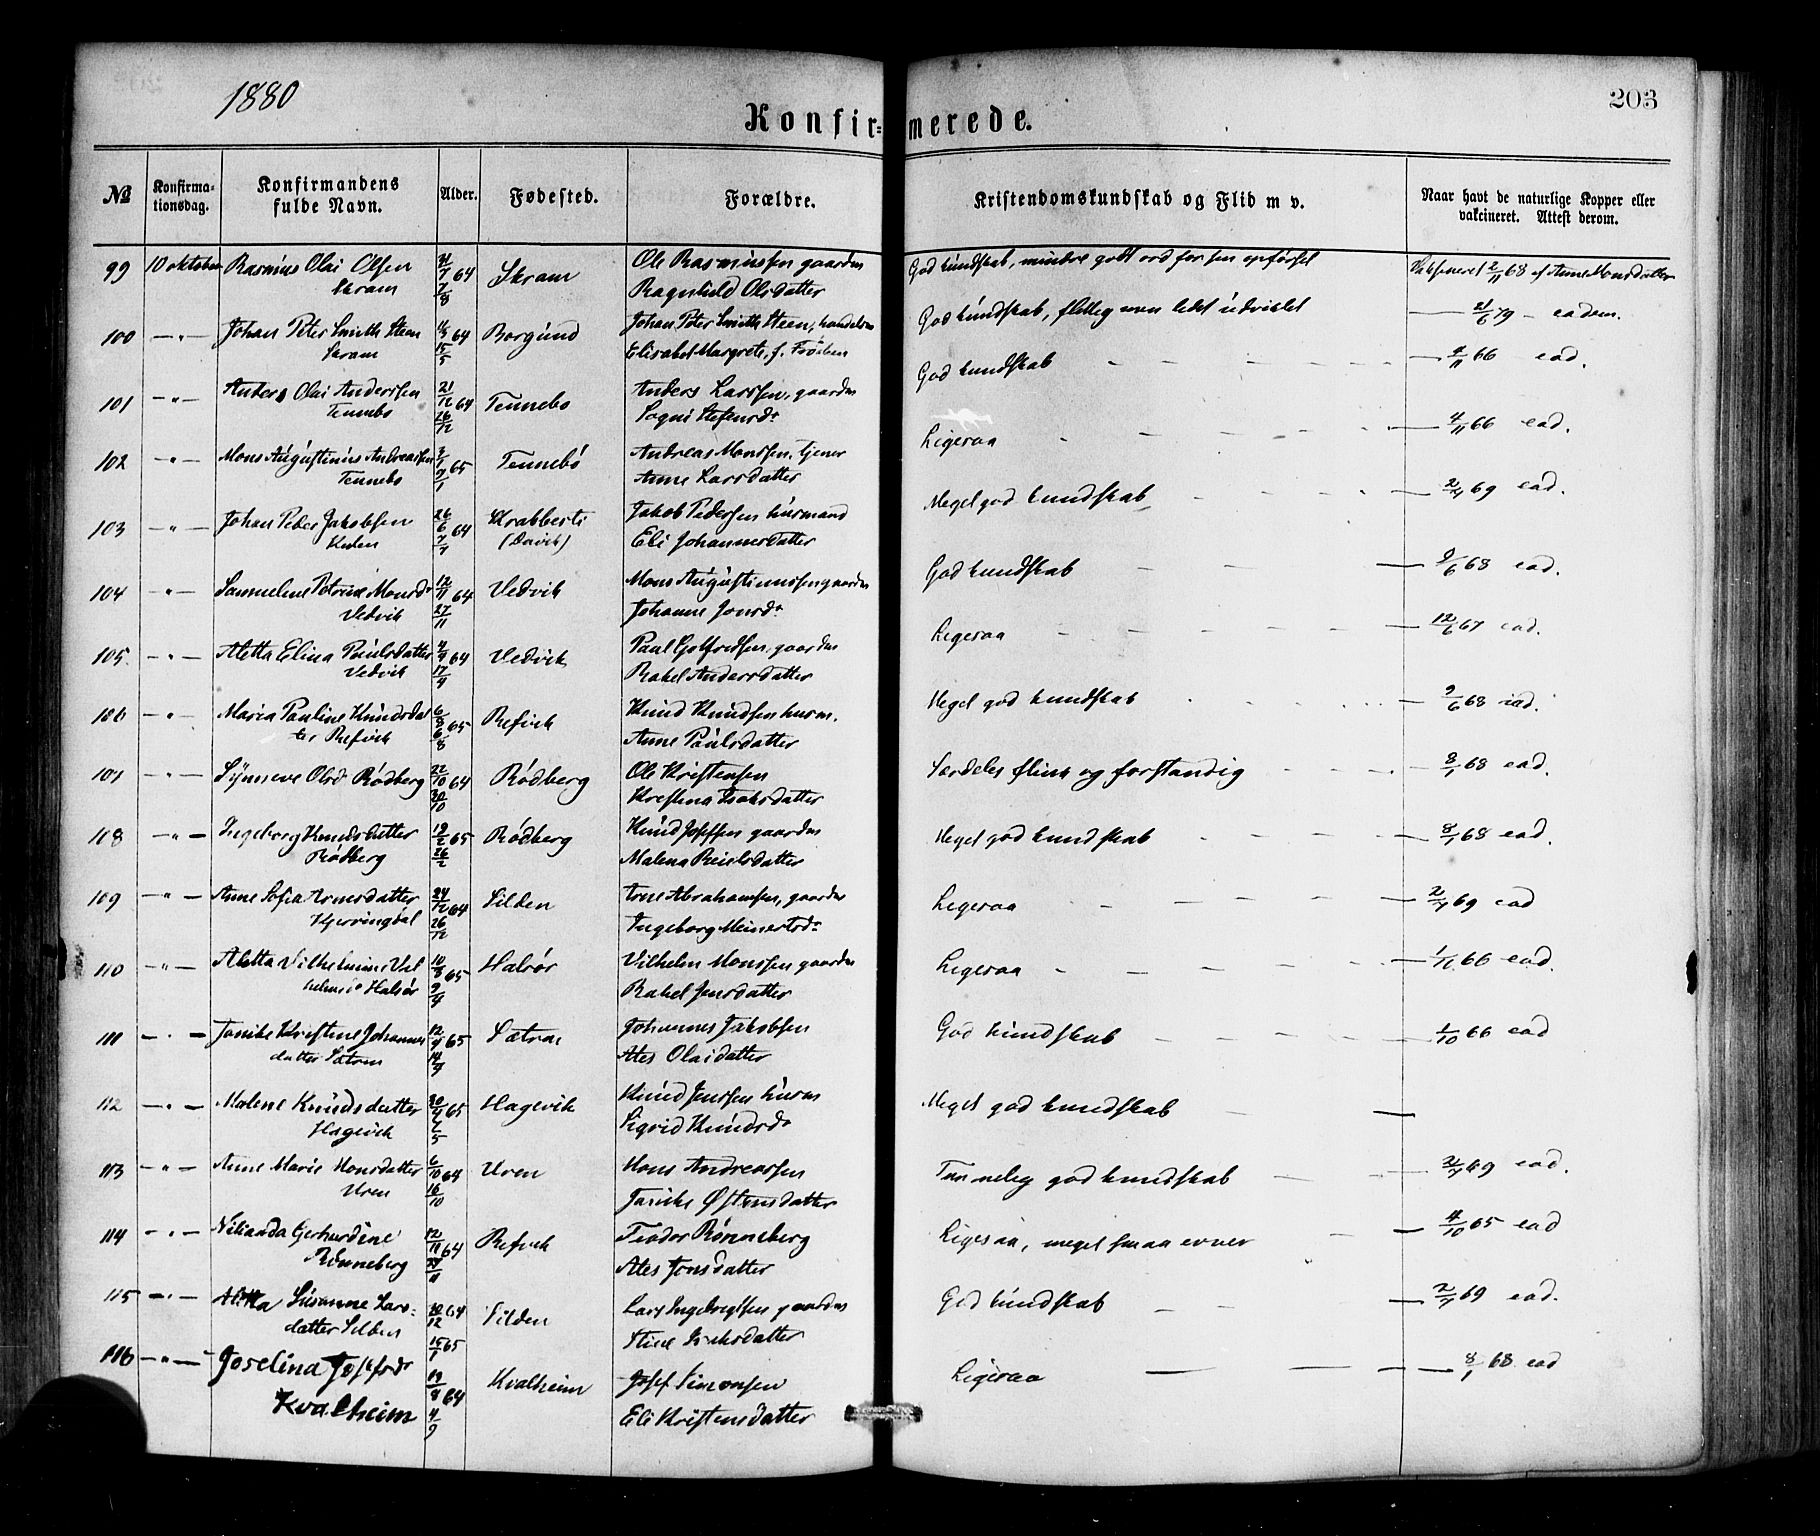 1880
203
Konfir=merede.
№ Konfirma-tionsdag. Konfirmandens fulde Navn. Alder. Fødested. Forældre. Kristendomskundskab og Flid m v. Naar havt de naturlige Kopper eller vakcineret. Attest derom.
99 10 oktober Rasmus Olai Olsen 64 Skram Ole Rasmussen gaardm God kundskab, mindre godt ord for sen opförsel Vaksineret 2/11 68 af Anne Monsdatter
Skram 7/8 Ragnhild Olsdatter
100 — " — Johan Peter Smith Steen 64 Borgund Johan Peter Smith Steen, God kundskab, flittig men lidt udviklet — 21/6 79 — eadem.
Skram 15/5 Elisabet Margrete, f.
101 — " — Anders Olai Anderssen 21/12 64 Tennebo Anders Larssen, gaardm God kundskab — 66 ead.
Tennebo 26/12 Sogni Stefensdr
102 — " — Mons Augustinus Andreassen 65 Tennebö Andreas Monssen, tjener Ligesaa — 4/11 66 ead.
Tennebo Anne Larsdatter
103 — " — Johan Peder Jakobsen 26/6 64 Krabbesti Jakob Pedersen husmand Meget god kundskab — 69 ead.
(Davik) Eli Johannesdatter
104 — " — Samueline Petrine Monsdr 12/11 64 Vedvik Mons Augustinussen gaardm God kundskab — 9/6 68 ead.
Vedvik 27/11 Johanne Jonsdr
105. — " — Aletta Elina Paulsdatter 64 Vedvik Paul Gotfredsen, gaardm Ligesaa — 12/6 67 ead.
Vedvik 17/4 Rakel Andersdatter
106 — " — Maria Pauline Knudsdat 65 Refvik Knud Knudsen husm. Meget god kundskab — 9/6 68 ead.
ter Refvik 6/8 Anne Paulsdatter
107 — " — Synneve Olsdr Rödberg 22/10 64 Rödberg Ole Kristensen Særdeles flink og forstandig — 8/1 68 ead.
30/10 Kristina Isaksdatter
108 — " — Ingeborg Knudsdatter 19/2 65 Rödberg Knud gaardm Meget god kundskab — 8/1 68 ead.
Rödberg 26/2 Malena
109 — " — Anne Sofia Arnesdatter 24/12 64 Silden Arne Abrahamsen, gaardm Ligesaa — 69 ead
Hjerringdal 26/12 Ingeborg Meinertsdr
110 — " — Aletta Vilhelmine Vil 65 Halsör Vilhelm Monssen gaardm Ligesaa — 66 ead.
Halsör 9/4 Rakel Jensdatter
111 — " — Janike Kristine Johannes 65 Sætren Johannes Jakobsen God kundskab — 1/10 66 ead
datter Sætren Ales Olaidatter
112 — " — Malene Knudsdatter 65 Hagevik Knud Jenssen husm Meget god kundskab —
Hagevik Sigrid Knudsdr
113 — " — Anne Marie Monsdatter 6/10 64 Uren Mons Andreassen god kundskab — 69 ead.
Uren 16/10 Janike Østensdatter
114 — " — Gerhardine 12/11 64 Refvik Teodor Rönneberg Ligesaa, meget smaa evner — 4/10 65 ead
Rönneberg Ales Jonsdatter
115 — " — Aletta Susanne Lars= 64 Silden Lars Ingebrigtsen gaardm God kundskab — 69 ead.
datter Silden 15/1 65 Stine
116 — " — Joselina Josefsdr 64 Kvalheim Josef Simonsen Ligesaa — 8/1 68 ead
Kvalheim 4/9 Eli Kristensdatter